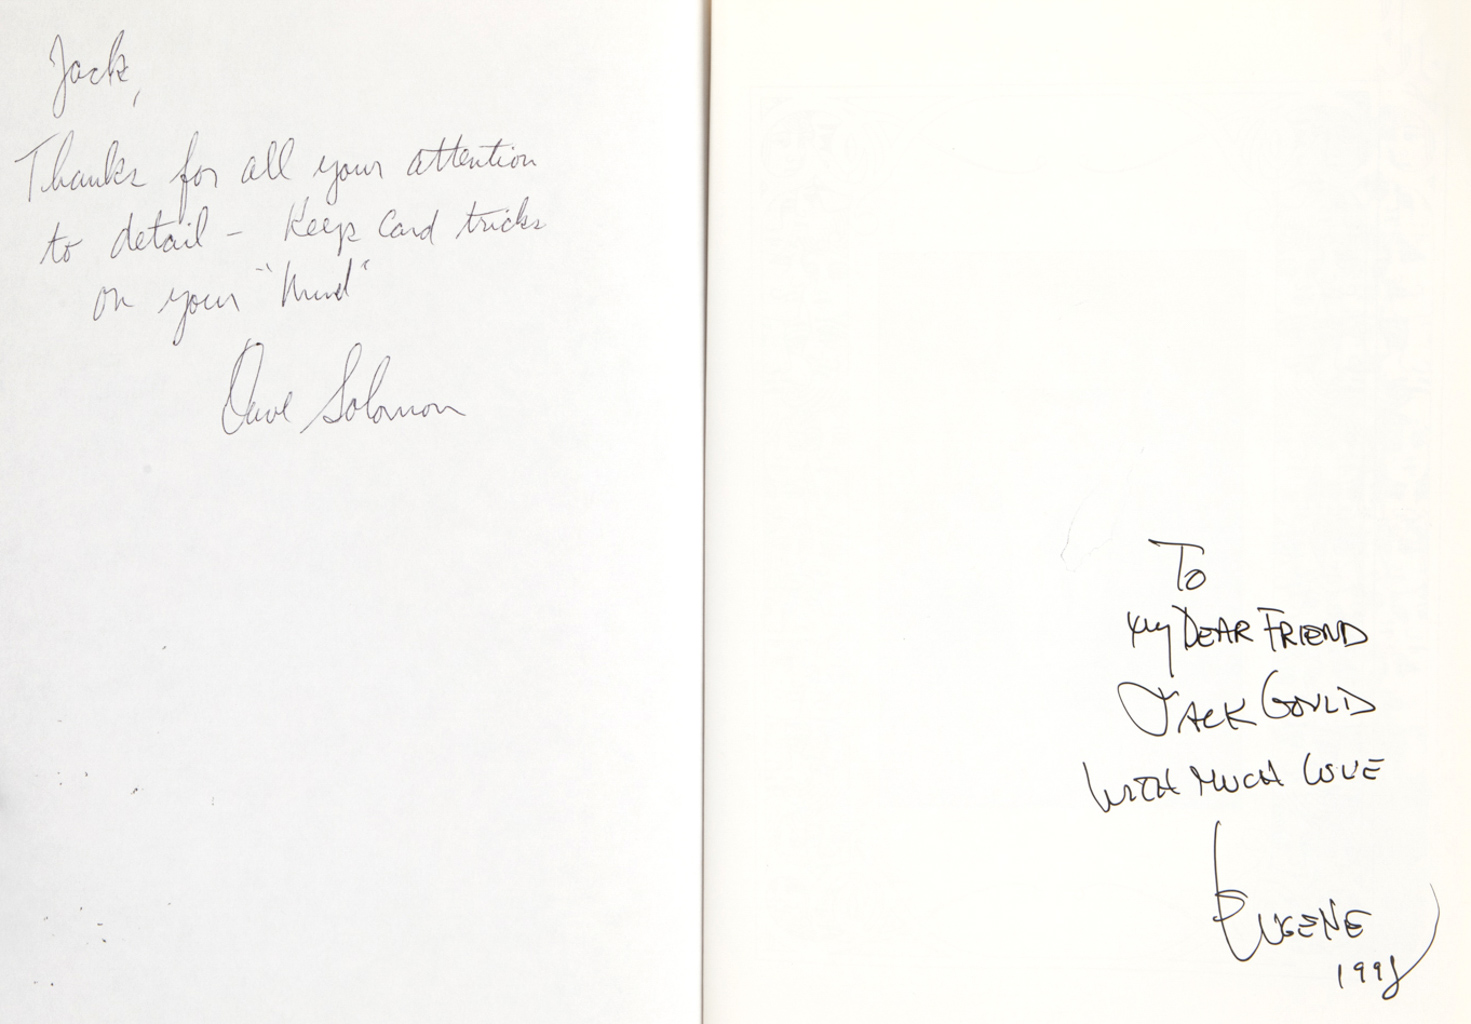 Jack,
Thanks for all your attention
to detail - Keep Card tricks
on your "Mind"
Dave Solomon
To
My DEAR FRIEND
JACK GOULD
WITH MUCH LOVE
EUGENE